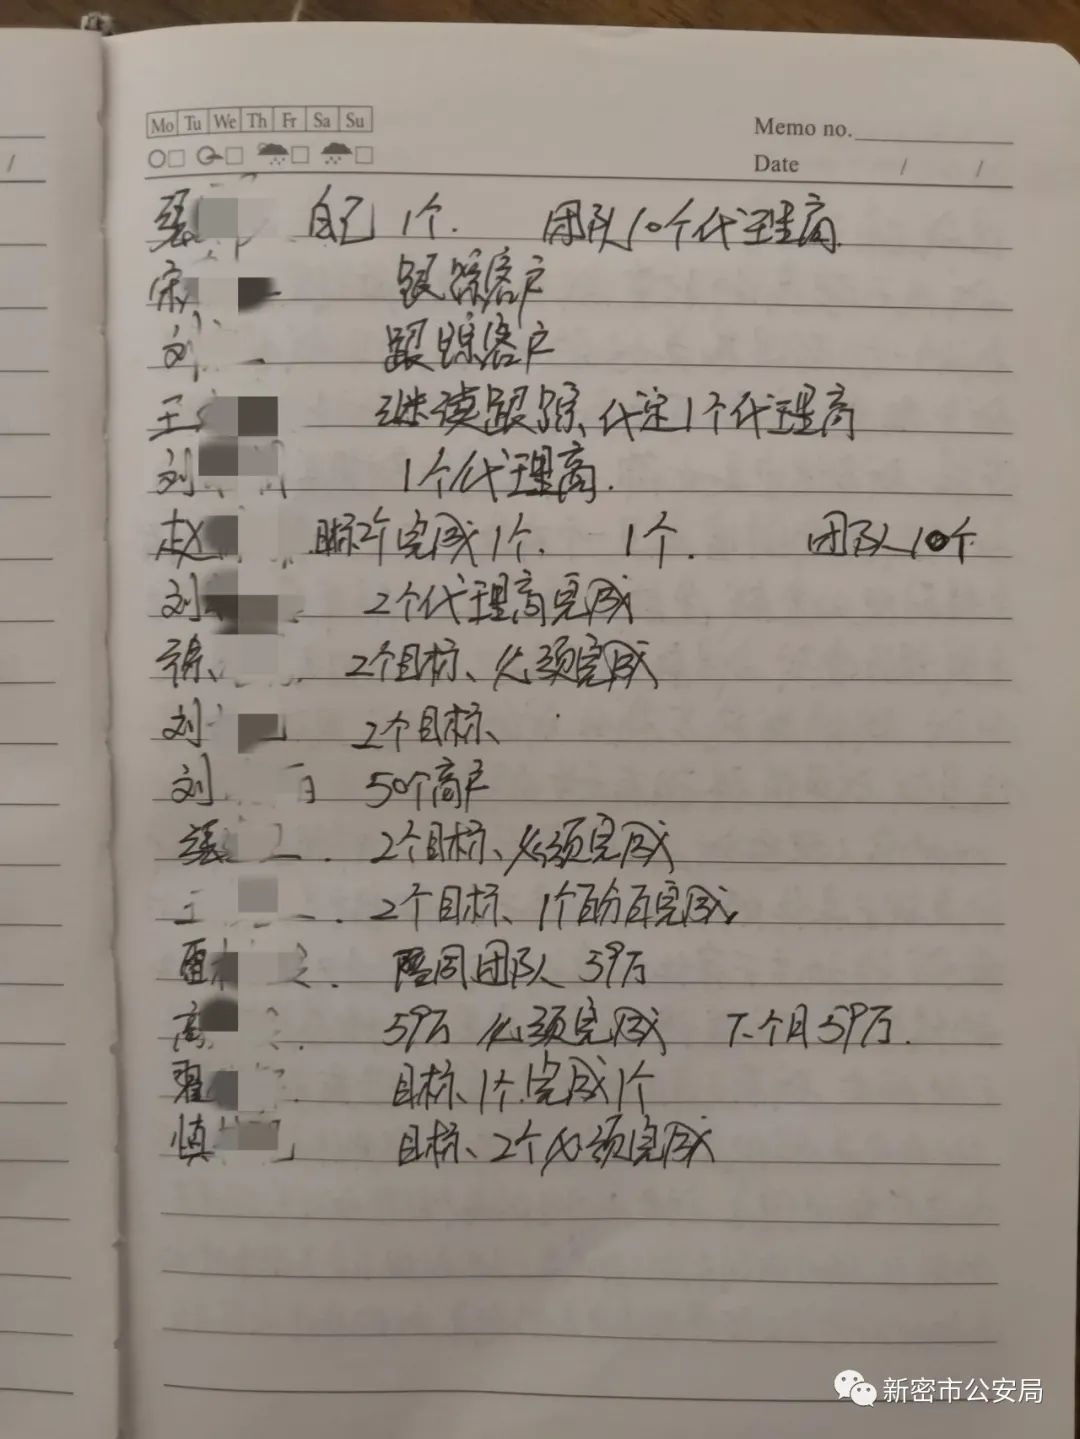 Mo Tu We Th Fr Sa Su
Memo no.
Date / /
张 自己 1个. 团队10个代理商.
宋 跟踪客户
刘 跟踪客户
王 继续跟踪、代定1个代理商
刘 1个代理商.
赵 目标2个完成1个. 1个. 团队10个
刘 2个代理商完成
徐、 2个目标、必须完成
刘 2个目标、
刘 50个商户
张 . 2个目标、必须完成
王 . 2个目标、1个百分百完成.
雷 . 陪同团队 59万
高 . 59万 必须完成 下个月59万.
翟 . 目标、1个.完成1个
慎 目标、2个必须完成
新密市公安局